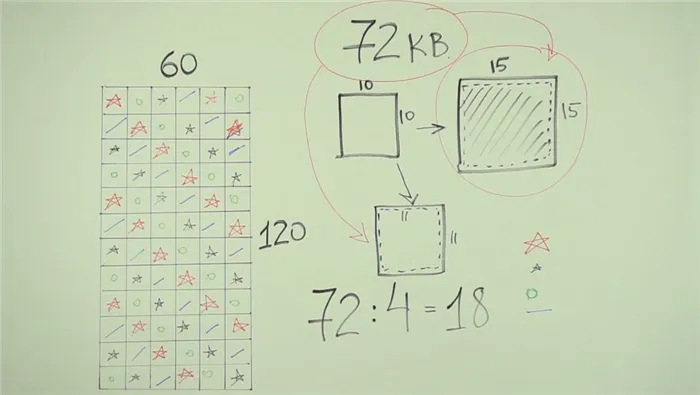 72 кв.
60
15
10
10
15
11
11
120
72 : 4 = 18